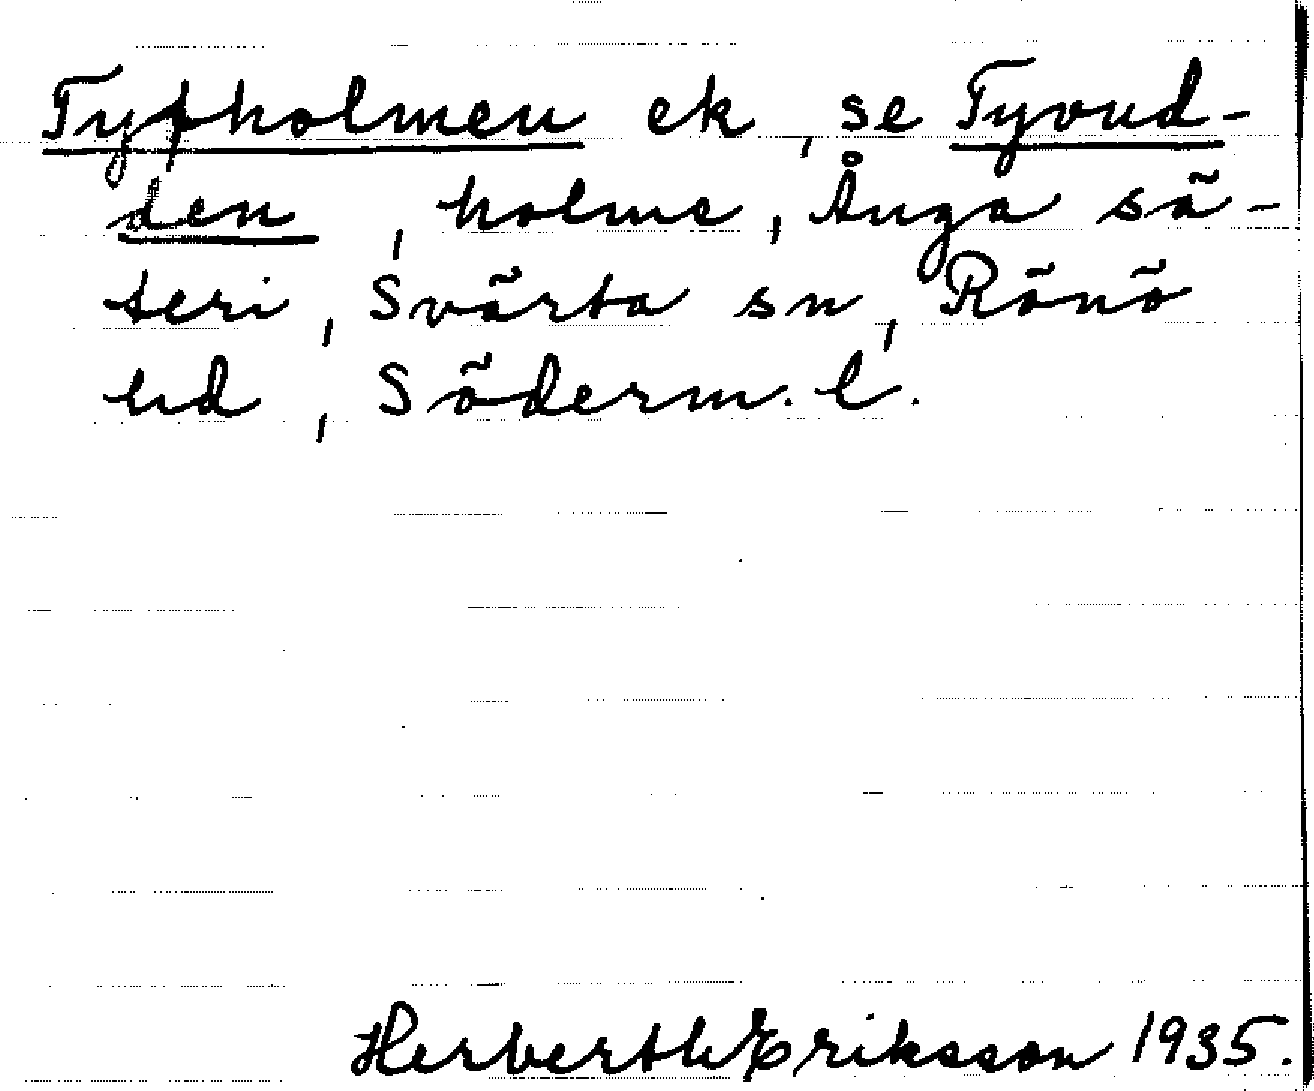 Tyfholmen ek, se Tyvud-
den, holme, Ånga sä-
teri, Svärta sn, Rönö
hd, Söderm. l.
Herberth Eriksson 1935.